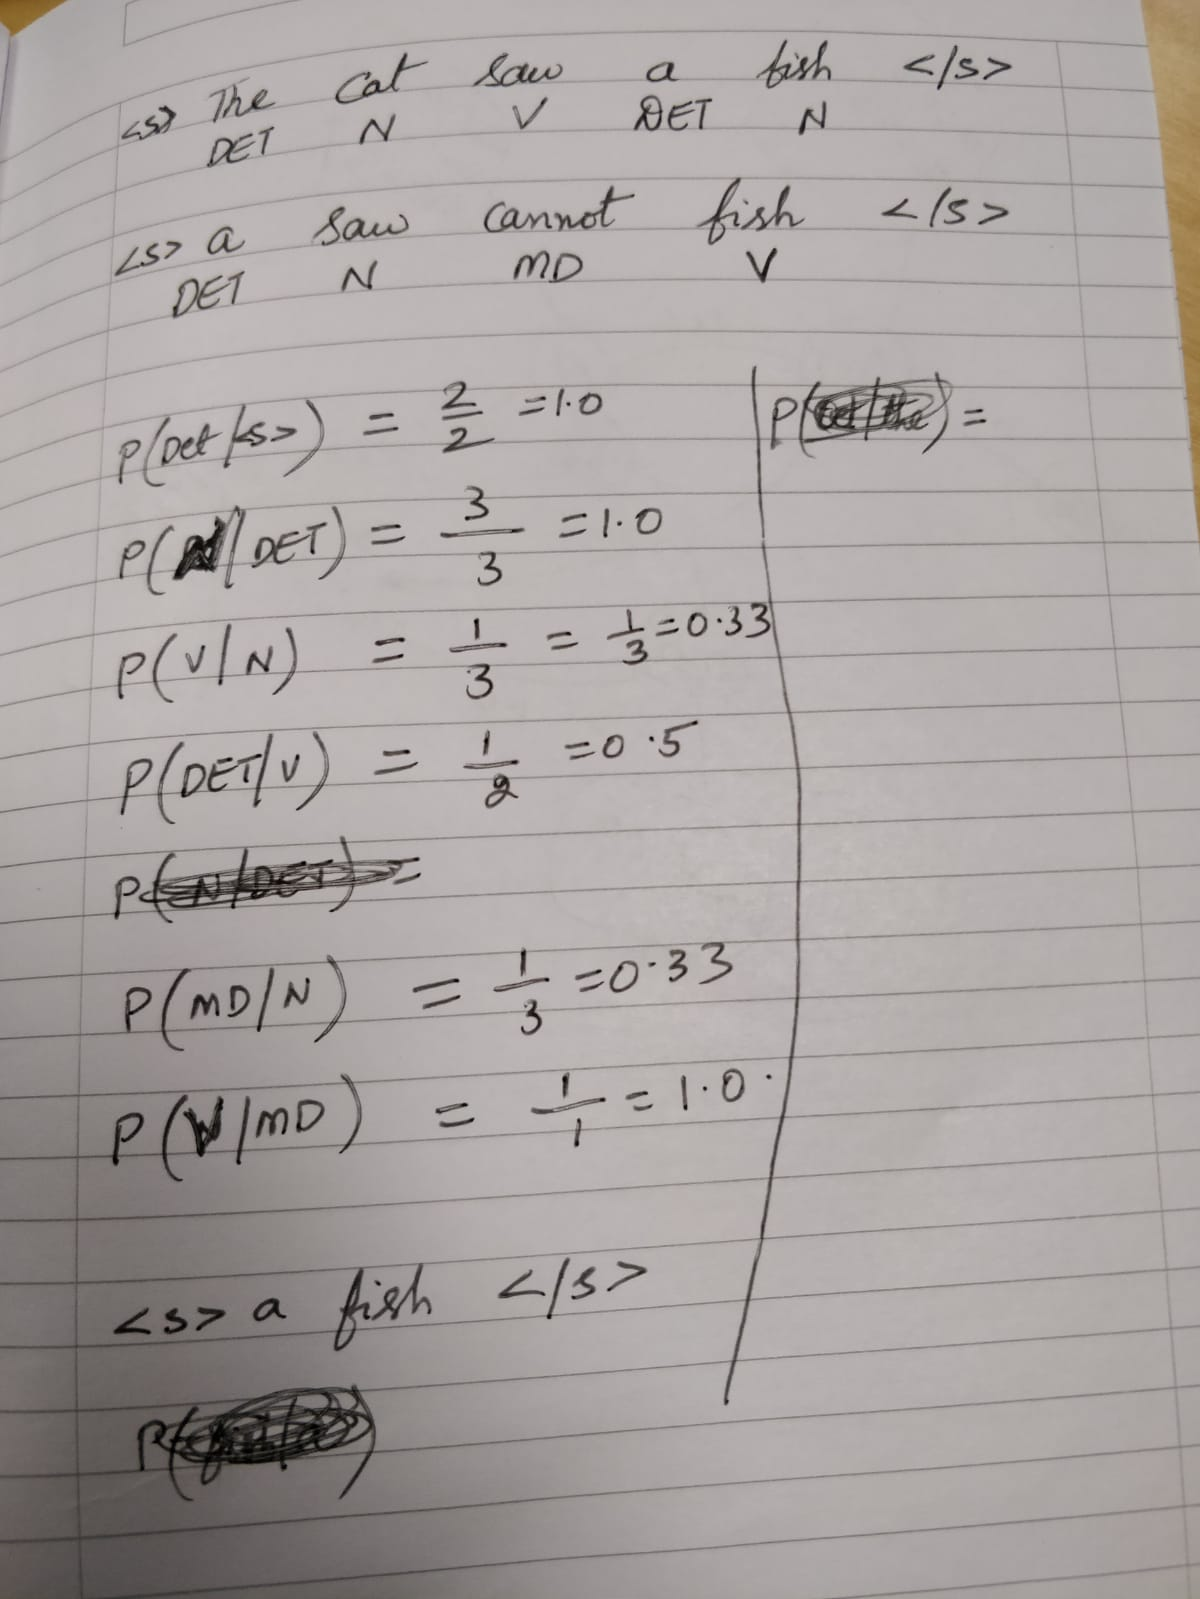 <s> The cat saw a fish </s>
DET N V DET N
<s> a saw cannot fish </s>
DET N MD V
P(Det/<s>) = 2/2 = 1.0
P(N/DET) = 3/3 = 1.0
P(V/N) = 1/3 = 1/3 = 0.33
P(DET/V) = 1/2 = 0.5
P(N/DET) =
P(MD/N) = 1/3 = 0.33
P(V/MD) = 1/1 = 1.0.
<s> a fish </s>
P( )
P( ) =